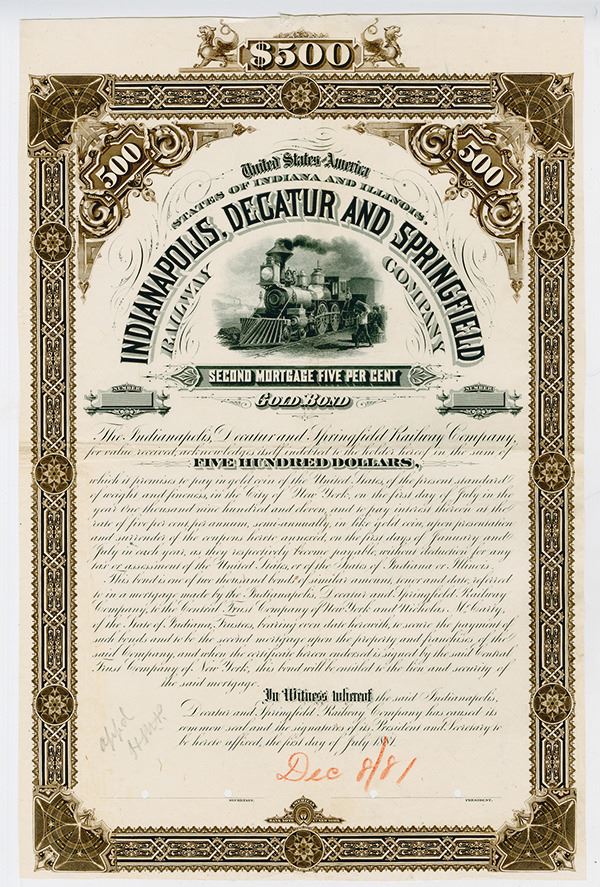 $500
500
500
United States of America
STATES OF INDIANA AND ILLINOIS.
INDIANAPOLIS, DECATUR AND SPRINGFIELD
RAILWAY COMPANY
SECOND MORTGAGE FIVE PER CENT
NUMBER
NUMBER
GOLD BOND
The Indianapolis, Decatur and Springfield Railway Company,
for value received, acknowledges itself indebted to the holder hereof in the sum of
FIVE HUNDRED DOLLARS,
which it promises to pay in gold coin of the United States, of the present standard
of weight and fineness, in the City of New York, on the first day of July in the
year One thousand nine hundred and eleven, and to pay interest thereon at the
rate of five per cent per annum, semi-annually, in like gold coin, upon presentation
and surrender of the coupons hereto annexed, on the first days of January and
July in each year, as they respectively become payable, without deduction for any
tax or assessment of the United States, or of the States of Indiana or Illinois.
This bond is one of two thousand bonds of similar amount, tenor and date, referred
to in a mortgage made by the Indianapolis, Decatur and Springfield Railway
Company, to the Central Trust Company of New York and Nicholas McCarty,
of the State of Indiana, Trustees, bearing even date herewith, to secure the payment of
such bonds, and to be the second mortgage upon the property and franchises of the
said Company, and when the certificate hereon endorsed is signed by the said Central
Trust Company of New York, this bond will be entitled to the lien and security of
the said mortgage.
In Witness whereof the said Indianapolis,
Decatur and Springfield Railway Company has caused its
common seal and the signatures of its President and Secretary to
be hereto affixed, the first day of July 1881.
app'd
Dec 8/81.
SECRETARY.
PRESIDENT.